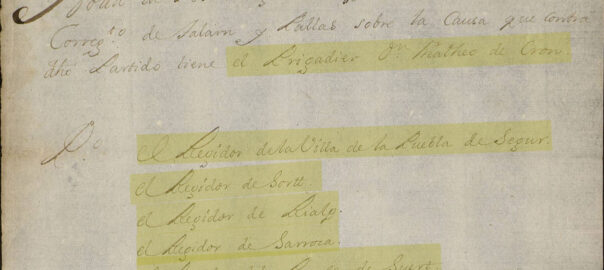 Correg.to de Talarn y Pallas sobre la Causa que contra
dho Partido tiene el Brigadier Dn Matheo de Cron.
el Regidor de la Villa de la Puebla de Segur.
el Regidor de Sortt.
el Regidor de Rialp.
el Regidor de Sarroca.